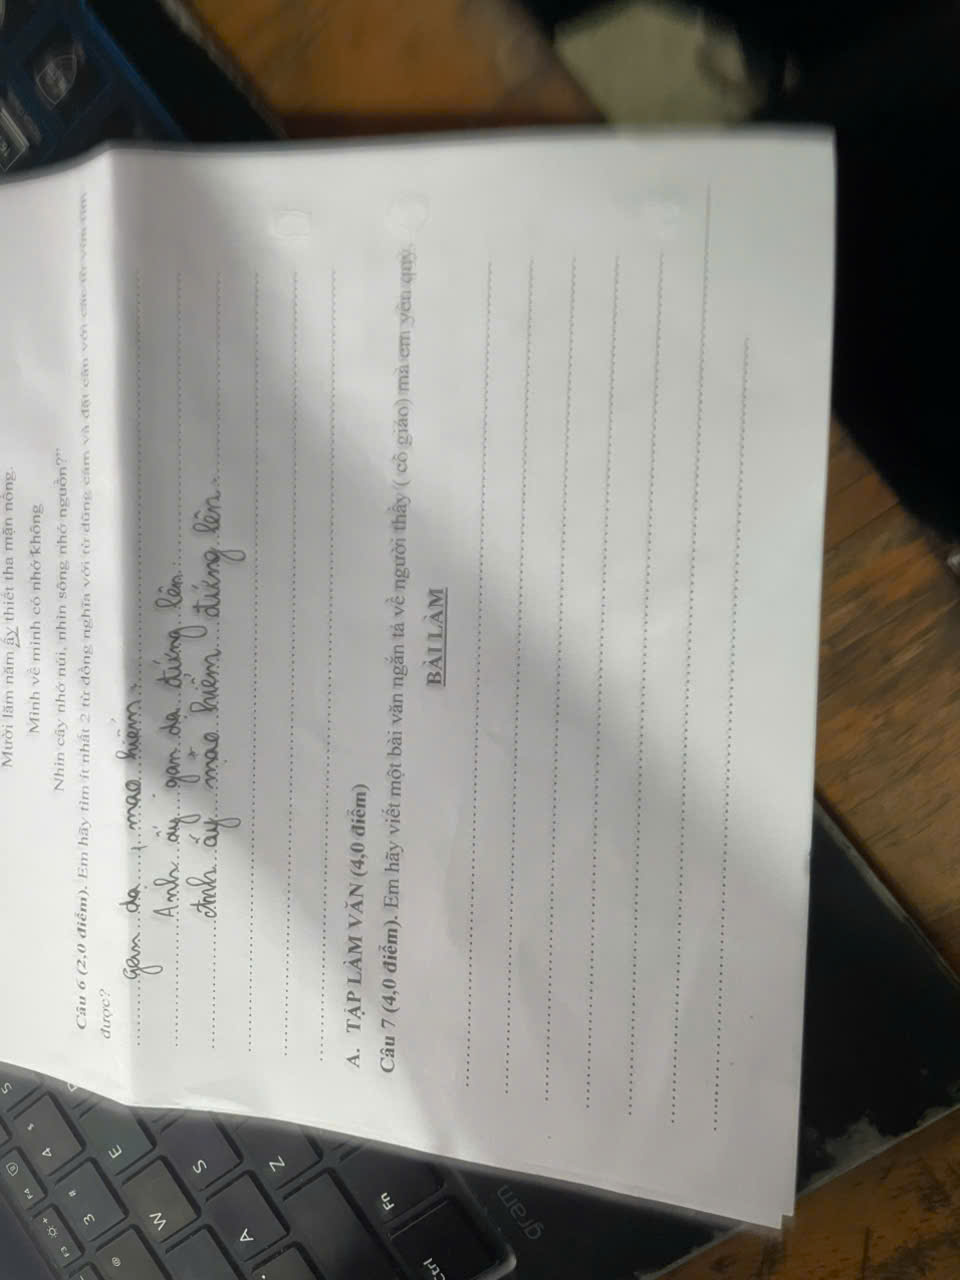 Mười lăm năm ấy thiết tha mặn nồng.
Mình về mình có nhớ không
Nhìn cây nhớ núi, nhìn sông nhớ nguồn?"
Câu 6 (2.0 điểm). Em hãy tìm ít nhất 2 từ đồng nghĩa với từ dũng cảm và đặt câu với các từ vừa tìm
được?
gan dạ, mạo hiểm.
Anh ấy gan dạ đứng lên.
Anh ấy mạo hiểm đứng lên.
A. TẬP LÀM VĂN (4,0 điểm)
Câu 7 (4,0 điểm). Em hãy viết một bài văn ngắn tả về người thầy ( cô giáo) mà em yêu quý.
BÀI LÀM
F3
F4
@
3 #
4 $
5
W
E
A
S
Z
Fn
Ctrl
gram